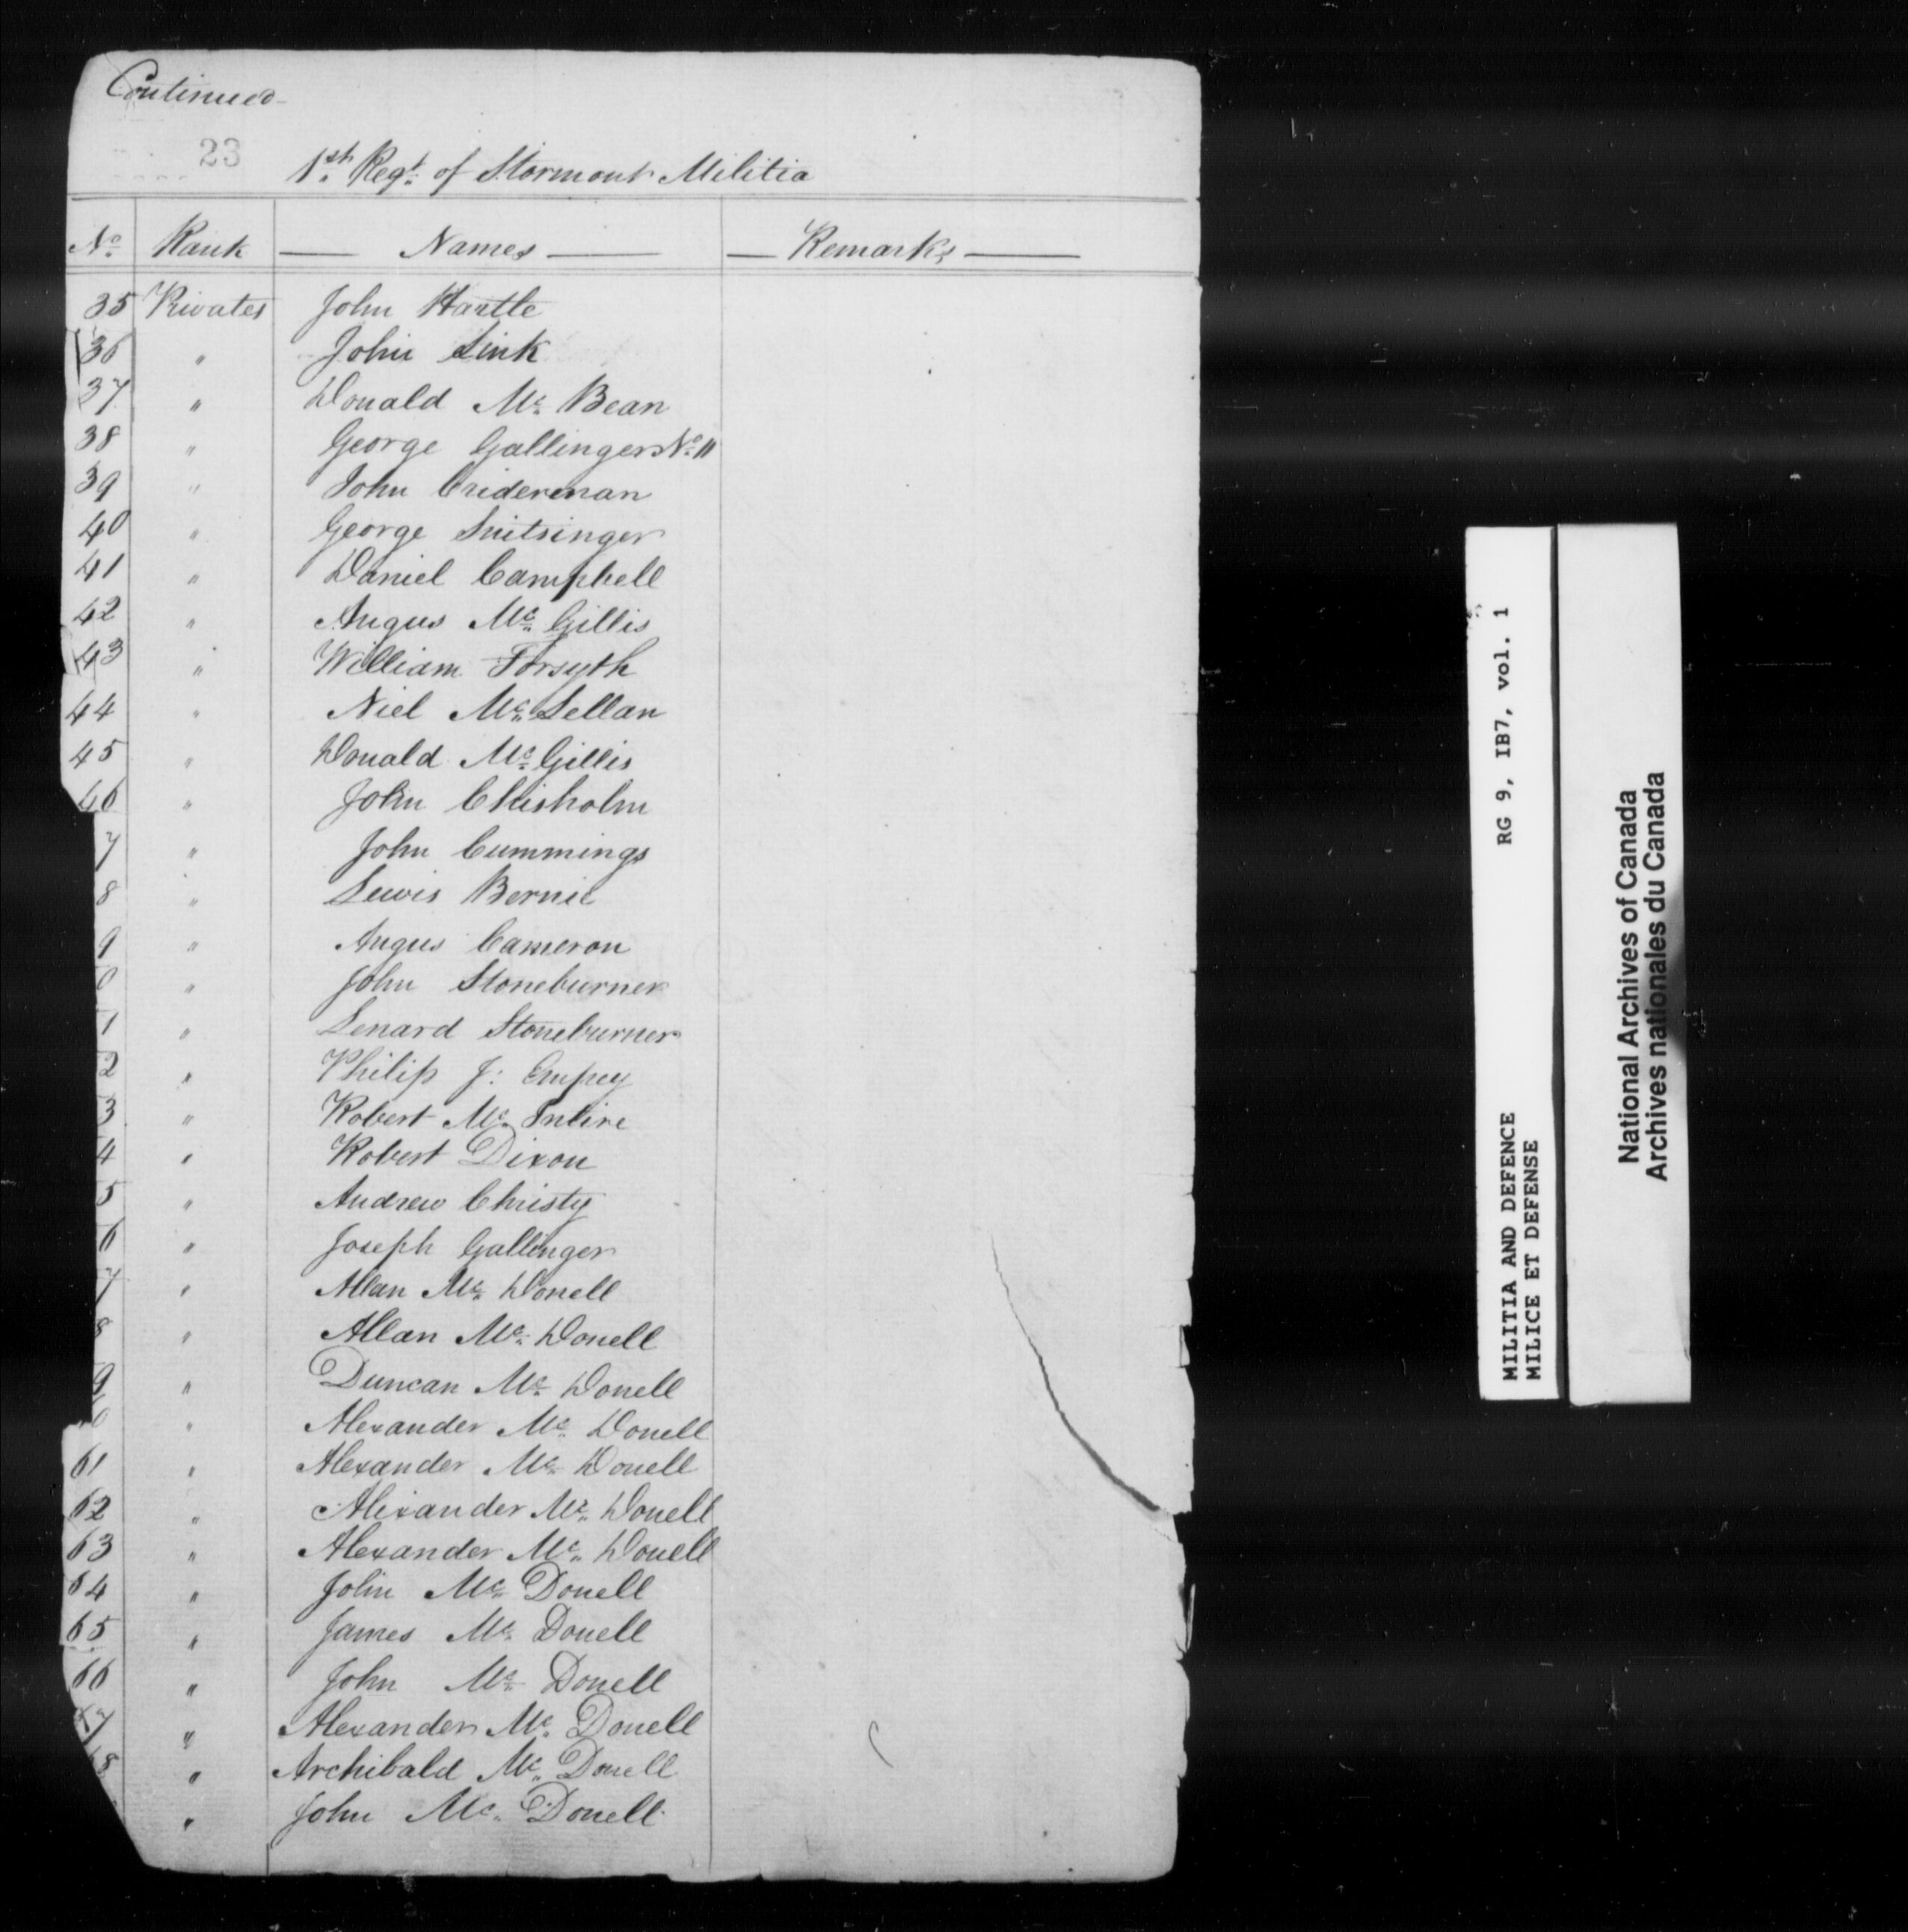 Continued
23
1st Regt. of Stormont Militia
No. Rank Names Remarks
35 Privates John Hartle
36 " John Link
37 " Donald Mc Bean
38 " George Gallinger No. 11
39 " John Criderman
40 " George Snitsinger
41 " Daniel Campbell
42 " Angus Mc Gillis
43 " William Forsyth
44 " Niel Mc Lellan
45 " Donald Mc Gillis
46 " John Chisholm
7 " John Cummings
8 " Lewis Bernie
9 " Angus Cameron
0 " John Stoneburner
1 " Lenard Stoneburner
2 " Philip J: Empey
3 " Robert Mc Intire
4 " Robert Dixon
5 " Andrew Christy
6 " Joseph Gallinger
7 " Allan Mc Donell
8 " Allan Mc Donell
9 " Duncan Mc Donell
0 " Alexander Mc Donell
61 " Alexander Mc Donell
62 " Alexander Mc Donell
63 " Alexander Mc Donell
64 " John Mc Donell
65 " James Mc Donell
66 " John Mc Donell
67 " Alexander Mc Donell
68 " Archibald Mc Donell
" John Mc Donell
MILITIA AND DEFENCE RG 9, IB7, vol. 1
MILICE ET DEFENSE
National Archives of Canada
Archives nationales du Canada